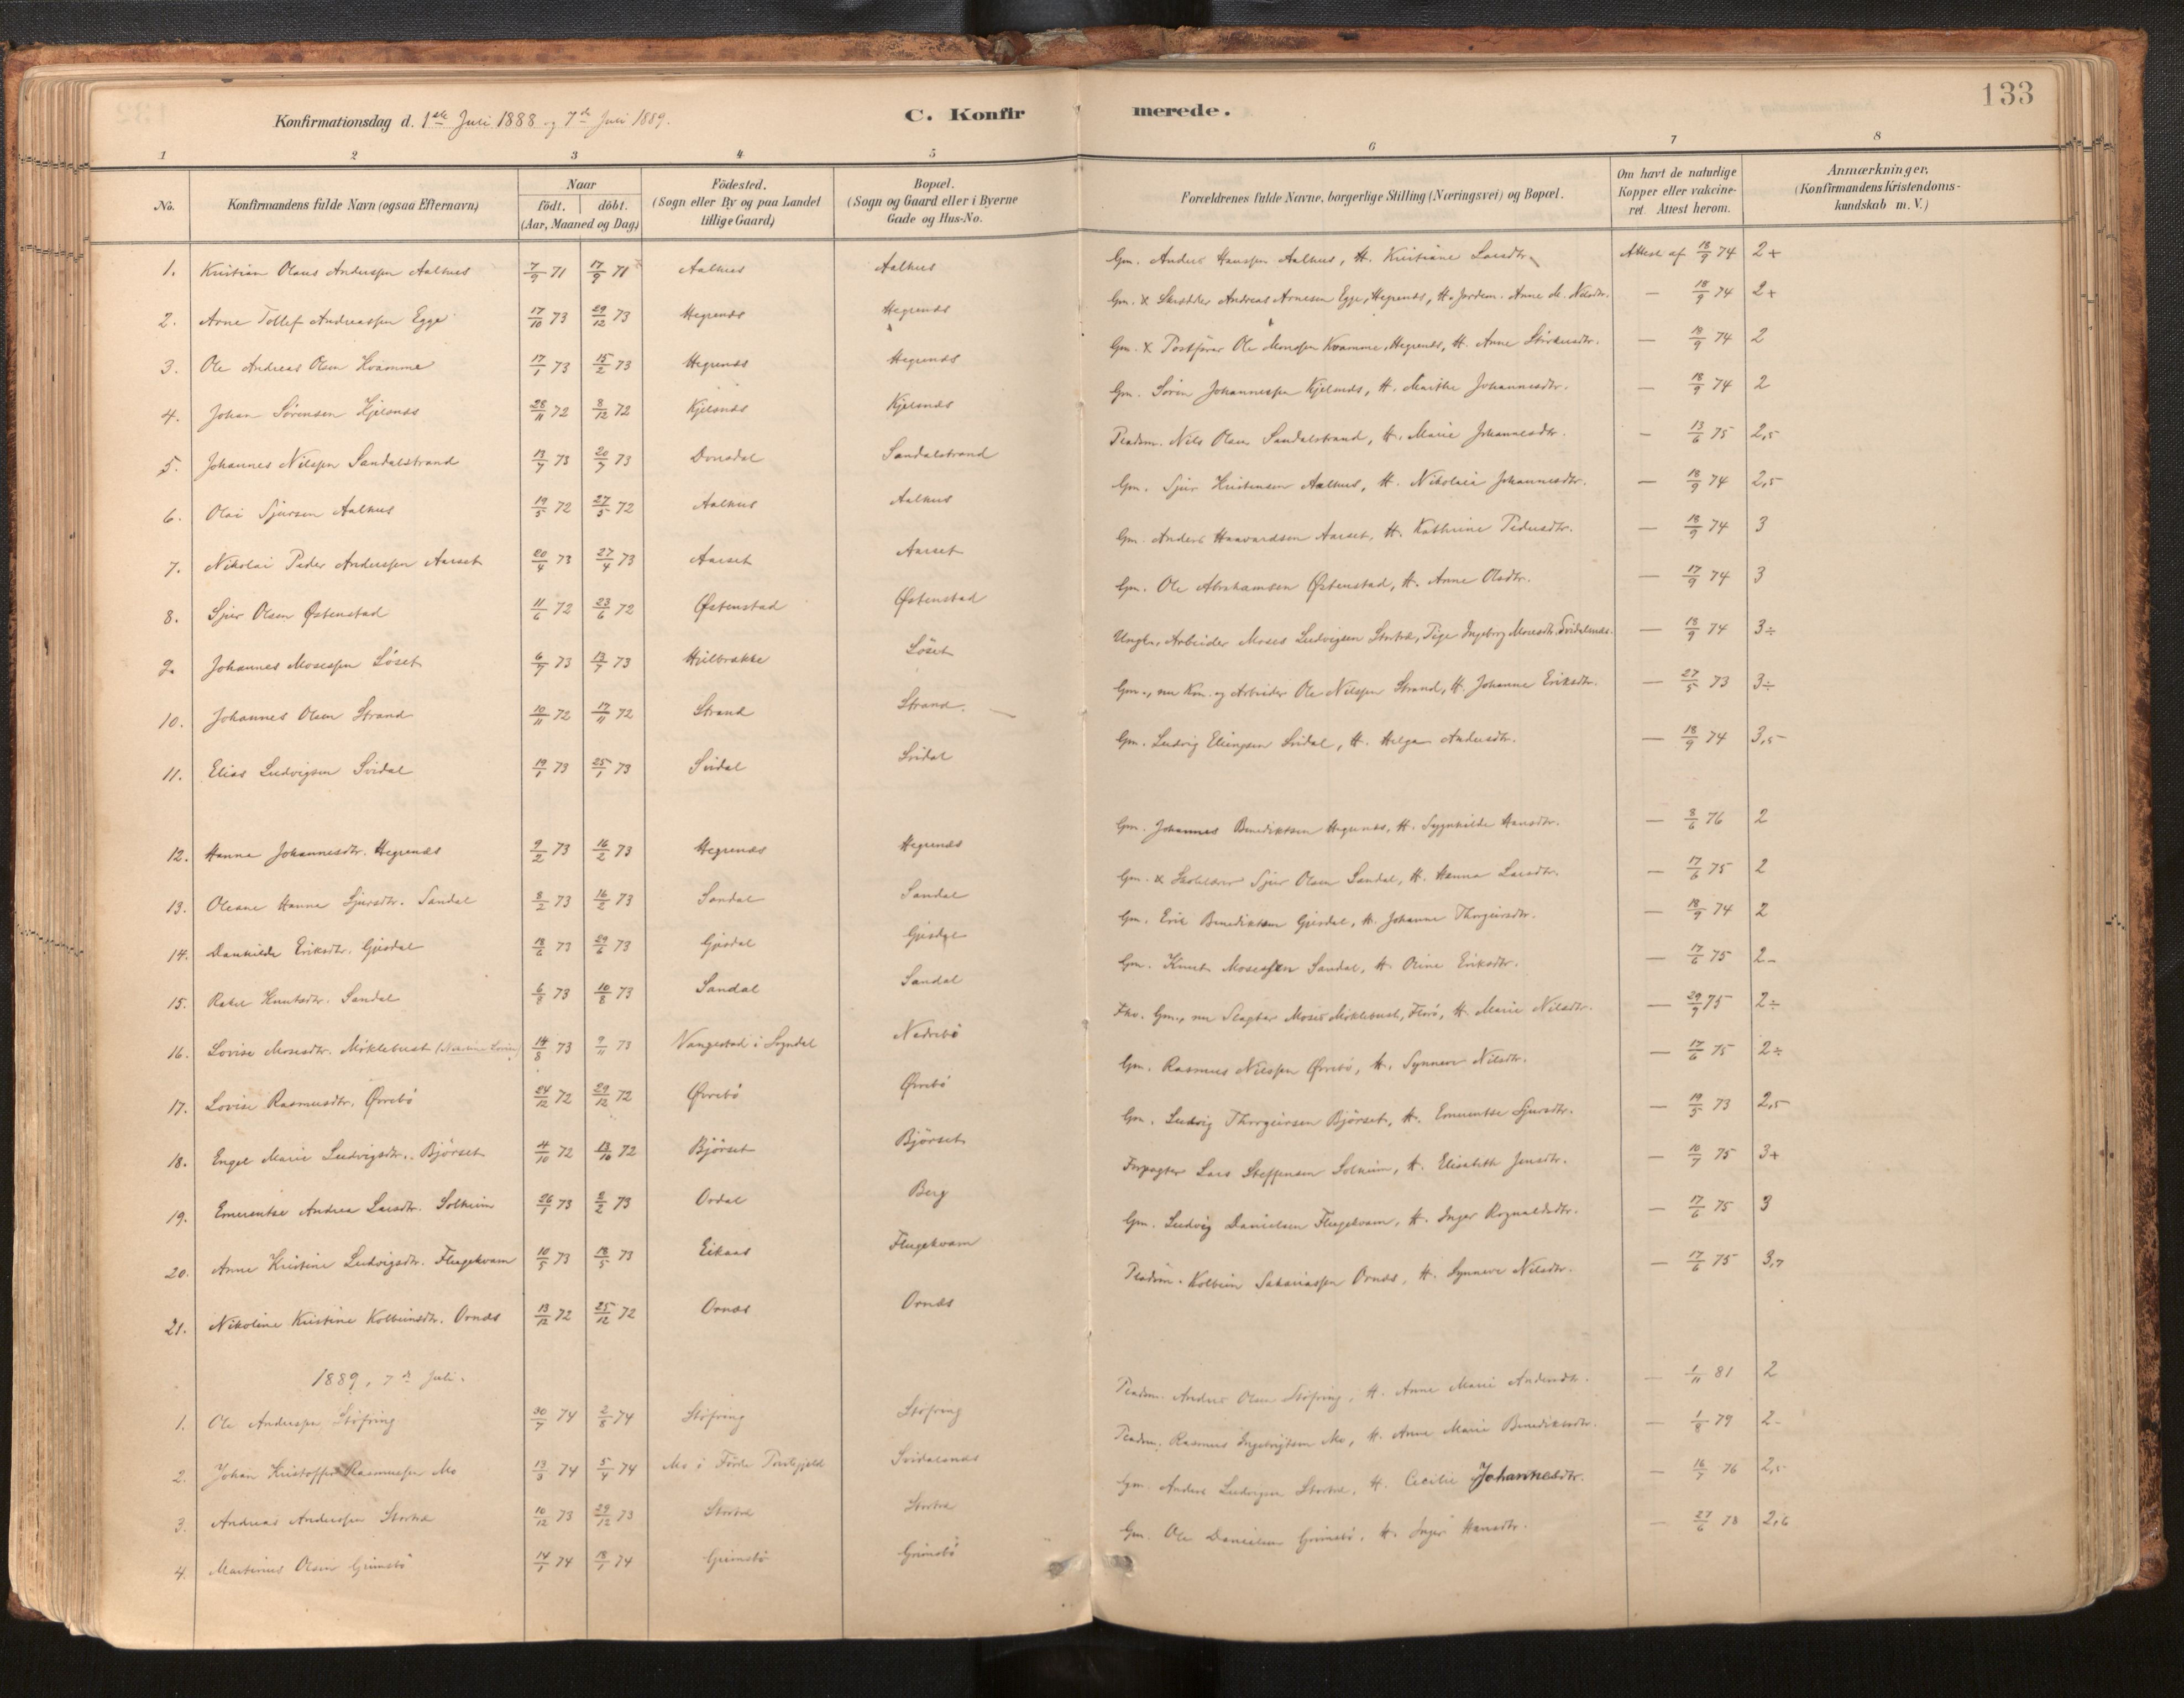 133
Konfirmationsdag d. 1ste Juli 1888 og 7de Juli 1889.
C. Konfirmerede.
1 2 3 4 5 6 7 8
No.
Konfirmandens fulde Navn (ogsaa Efternavn)
Naar födt. döbt. (Aar, Maaned og Dag)
Födested. (Sogn eller By og paa Landet tillige Gaard)
Bopæl. (Sogn og Gaard eller i Byerne Gade og Hus-No.
Forældrenes fulde Navne, borgerlige Stilling (Næringsvei) og Bopæl.
Om havt de naturlige Kopper eller vakcineret. Attest herom.
Anmærkninger. (Konfirmandens Kristendomskundskab m. V.)
1. Kristian Olaus Anderssen Aalhus 7/9 71 17/9 71 Aalhus Aalhus Gm. Anders Hanssen Aalhus, H. Kristiane Larsdtr. Attest af 18/9 74 2+
2. Arne Tollef Andreassen Egge 17/10 73 29/12 73 Hegrenæs Hegrenæs Gm. x Skrædder Andreas Arnesen Egge, Hegrenæs, H. Jordem. Anne M. Nilsdtr. — 18/9 74 2+
3. Ole Andreas Olsen Kvamme 17/1 73 15/2 73 Hegrenæs Hegrenæs Gm. x Postförer Ole Monssen Kvamme, Hegrenæs, H. Anne — 18/9 74 2
4. Johan Sörensen Kjelsnæs 28/11 72 8/12 72 Kjelsnæs Kjelsnæs Gm. Sören Johannessen Kjelsnæs, H. Marthe Johannesdtr. — 18/9 74 2
5. Johannes Nilssen Sandalstrand 13/7 73 20/7 73 Dvergsdal Sandalstrand Pladsm. Nils Olsen Sandalstrand, H. Marie Johannesdtr. — 13/6 75 2,5
6. Olai Sjursen Aalhus 19/5 72 27/5 72 Aalhus Aalhus Gm. Sjur Kristensen Aalhus, H. Nikolaia Johannesdtr. — 18/9 74 2,5
7. Nikolai Peder Anderssen Aarset 20/4 73 27/4 73 Aarset Aarset Gm. Anders Haavardsen Aarset, H. Kathrine Pedersdtr. — 18/9 74 3
8. Sjur Olsen Østenstad 11/6 72 23/6 72 Østenstad Østenstad Gm. Ole Abrahamsen Østenstad, H. Anne Olsdtr. — 17/9 74 3
9. Johannes Mosessen Löset 6/7 73 13/7 73 Hvilbrække Löset Ungk., Arbeider Moses Ludvigsen Stortræ, Pige Ingeborg Mosesdtr. Svidalsnæs. — 18/9 74 3÷
10. Johannes Olsen Strand 10/11 72 17/11 72 Strand Strand. Gm., nu Km. og Arbeider Ole Nilssen Strand, H. Johanne Eriksdtr. — 27/5 73 3÷
11. Elias Ludvigsen Svidal 19/1 73 25/1 73 Svidal Svidal Gm. Ludvig Elingsen Svidal, H. Helga Andersdtr. — 18/9 74 3,5
12. Hanna Johannesdtr. Hegrenæs 9/2 73 16/2 73 Hegrenæs Hegrenæs Gm. Johannes Benediktsen Hegrenæs, H. Sygnhilde Hansdtr. — 8/6 76 2
13. Oleane Hanna Sjursdtr. Sandal 8/2 73 16/2 73 Sandal Sandal Gm. x Skolelærer Sjur Olsen Sandal, H. Hanna Larsdtr. — 17/6 75 2
14. Danhilde Eriksdtr. Gjesdal 18/6 73 29/6 73 Gjesdal Gjesdal Gm. Erik Benediktsen Gjesdal, H. Johanne Thorgeirsdtr. — 18/9 74 2
15. Rakel Knutsdtr. Sandal 6/8 73 10/8 73 Sandal Sandal Gm. Knut Mosessen Sandal, H. Oline Eriksdtr. — 17/6 75 2-
16. Lovise Mosesdtr. Möklebust 14/8 73 9/11 73 Vangestad i Sogndal Nedrebö Fhv. Gm., nu Slagter Moses Möklebust, Florö, H. Marie Nilsdtr. — 29/9 75 2÷
17. Lovise Rasmusdtr. Øvrebö 24/12 72 29/12 72 Øvrebö Øvrebö Gm. Rasmus Nilssen Øvrebö, H. Synneve Nilsdtr. — 17/6 75 2÷
18. Engel Marie Ludvigsdtr. Bjørset 4/10 72 13/10 72 Bjørset Bjørset Gm. Ludvig Thorgeirsen Bjørset, H. Emerentse Sjursdtr. — 19/5 73 2,5
19. Emerentse Andrea Larsdtr. Solheim 26/1 73 2/2 73 Ordal Berg Forpagter Lars Steffensen Solheim, H. Elisabeth Jensdtr. — 10/7 75 3+
20. Anne Kristine Ludvigsdtr. Flugekvam 10/5 73 18/5 73 Eikaas Flugekvam Gm. Ludvig Danielsen Flugekvam, H. Inger Rognaldsdtr. — 17/6 75 3
21. Nikoline Kristine Kolbeinsdtr. Ornæs 13/12 72 25/12 72 Ornæs Ornæs Pladsm. Kolbein Sakariassen Ornæs, H. Synneve Nilsdtr. — 17/6 75 3,7
1889, 7de Juli.
1. Ole Anderssen Stöfring 30/7 74 2/8 74 Stöfring Stöfring Pladsm. Anders Olsen Stöfring, H. Anne Marie Andersdtr. — 1/11 81 2
2. Johan Kristoffer Rasmussen Mo 13/3 74 5/4 74 Mo i Förde Præstegjeld Svidalsnæs Pladsm. Rasmus Ingebrigtsen Mo, H. Anne Marie Benediktsdtr. — 1/8 79 2-
3. Andreas Anderssen Stortræ 10/12 73 29/12 73 Stortræ Stortræ Gm. Anders Ludvigsen Stortræ, H. Cecilie Johannesdtr. — 16/7 76 2,5
4. Martinus Olsen Grimsbö 14/1 74 18/1 74 Grimsbö Grimsbö Gm. Ole Danielsen Grimsbö, H. Inger Hansdtr. — 27/6 78 2,6